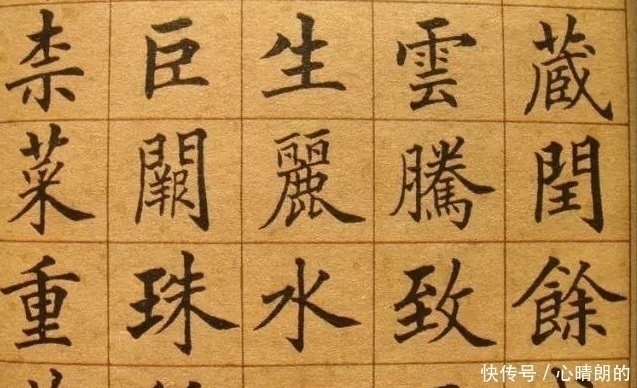 藏閏餘
雲騰致
生麗水
巨闕珠
柰菜重
快传号／心晴朗的